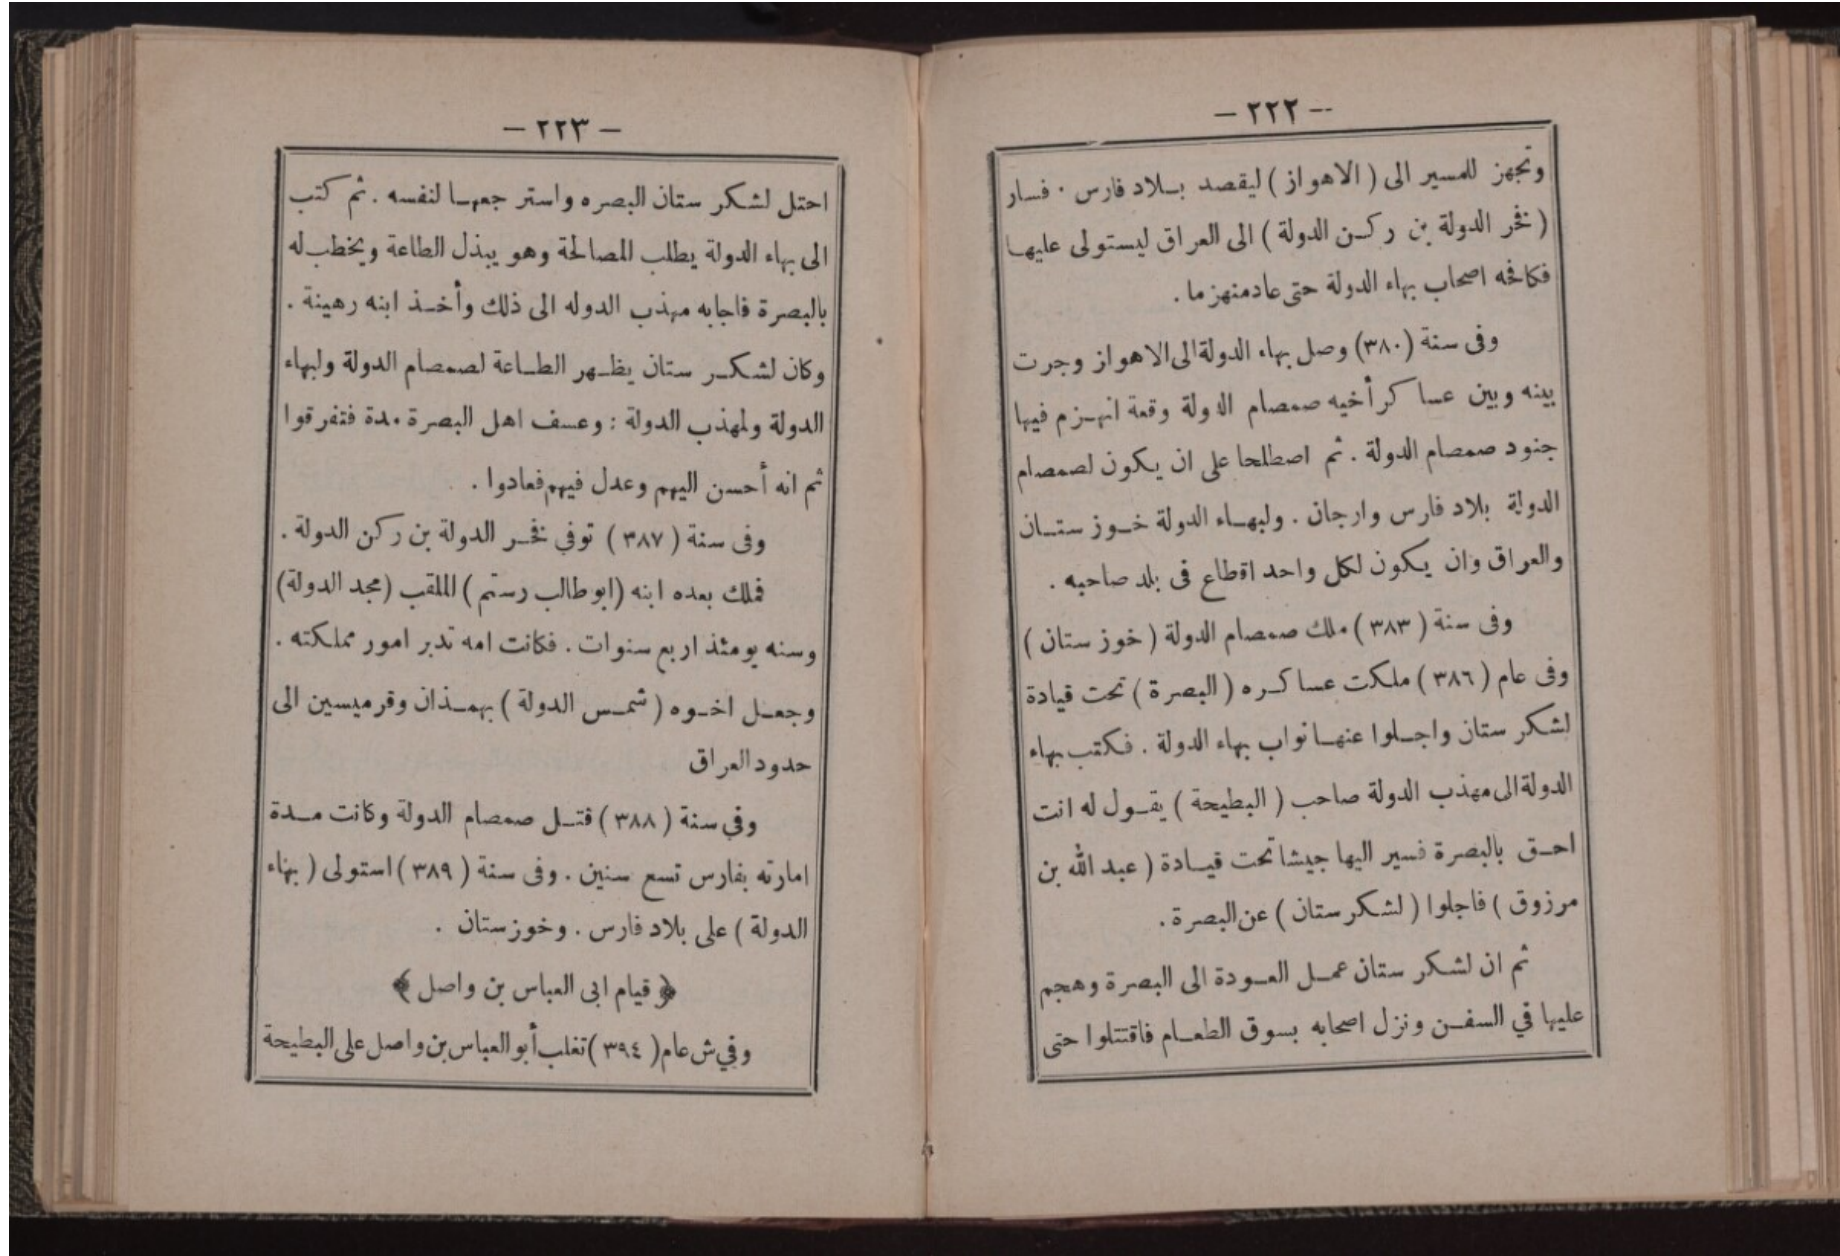 -- ٢٢٢ —
وتجهز للمسير الى ( الاهواز ) ليقصد بـلاد فارس ٠ فسار
( فخر الدولة بن ركـن الدولة ) الى العراق ليستولى عليهـا
فكافحه اصحاب بهاء الدولة حتى عادمنهزما .
وفى سنة (٣٨٠) وصل بهاء الدولة الى الاهواز وجرت
بينه وبين عساكر أخيه صمصام الدولة وقعة انهـزم فيها
جنود صمصام الدولة . ثم اصطلحا على ان يـكون لصمصام
الدولة بلاد فارس وارجان . ولبهـاء الدولة خـوز ستـان
والعراق وان يـكون لكل واحد اقطاع فى بلد صاحبه .
وفى سنة ( ٣٨٣ ) ملك صمصام الدولة ( خوز ستان )
وفى عام ( ٣٨٦ ) ملـكت عساكـره ( البصرة ) تحت قيادة
لشكر ستان واجـلوا عنهـا نواب بهاء الدولة . فـكتب بهاء
الدولة الى مهذب الدولة صاحب ( البطيحة ) يقـول له انت
احـق بالبصرة فسير اليها جيشا تحت قيـادة ( عبد الله بن
مرزوق ) فاجلوا ( لشكر ستان ) عن البصرة .
ثم ان لشكر ستان عمـل العـودة الى البصرة وهجم
عليها في السفـن ونزل اصحابه بسوق الطعـام فاقتتلوا حتى
— ٢٢٣ —
احتل لشكر ستان البصره واستر جعهـا لنفسه . ثم كتب
الى بهاء الدولة يطلب المصالحة وهو يبذل الطاعة ويخطب له
بالبصرة فاجابه مهذب الدوله الى ذلك وأخـذ ابنه رهينة .
وكان لشكـر ستان يظـهر الطـاعة لصمصام الدولة ولبهاء
الدولة ولمهذب الدولة : وعسف اهل البصرة مدة فتفرقوا
ثم انه أحسن اليهم وعدل فيهم فعادوا .
وفى سنة ( ٣٨٧ ) توفي فخـر الدولة بن ركن الدولة .
فملك بعده ابنه ( ابو طالب رستم ) الملقب (مجد الدولة)
وسنه يومئذ اربع سنوات . فكانت امه تدبر امور مملـكته .
وجعـل اخـوه ( شمـس الدولة ) بهمـذان وقرميسين الى
حدود العراق
وفي سنة ( ٣٨٨ ) قتـل صمصام الدولة وكانت مـدة
امارته بفارس تسع سنين . وفى سنة ( ٣٨٩ ) استولى ( بهاء
الدولة ) على بلاد فارس . وخوزستان .
﴿ قيام ابى العباس بن واصل ﴾
وفي ش عام ( ٣٩٤ ) تغلب أبو العباس بن واصل على البطيحة